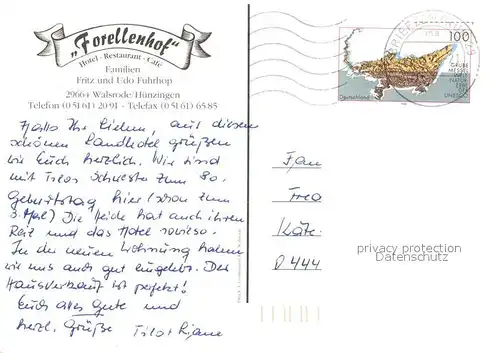 „Forellenhof“
Hotel - Restaurant - Café
Familien
Fritz und Udo Fuhrhop
29664 Walsrode/Hünzingen
Telefon (0 51 61) 20 91 - Telefax (0 51 61) 65 85
Hallo Ihr Lieben, aus diesem
schönen Landhotel grüßen
wir Euch herzlich. Wir sind
mit Tilos Schwester zum 80.
Geburtstag hier (schon zum
3. Mal) Die Heide hat auch ihren
Reiz und das Hotel sowieso.
In der neuen Wohnung haben
wir uns auch gut eingelebt. Der
Hausverkauf ist perfekt!
Euch alles Gute und
herzl. Grüße Tilo +
100
GRUBE
MESSEL
WELT
NATUR
ERBE
DER
UNESCO
Deutschland
Frau
Käte
D 444
privacy protection
Datenschutz